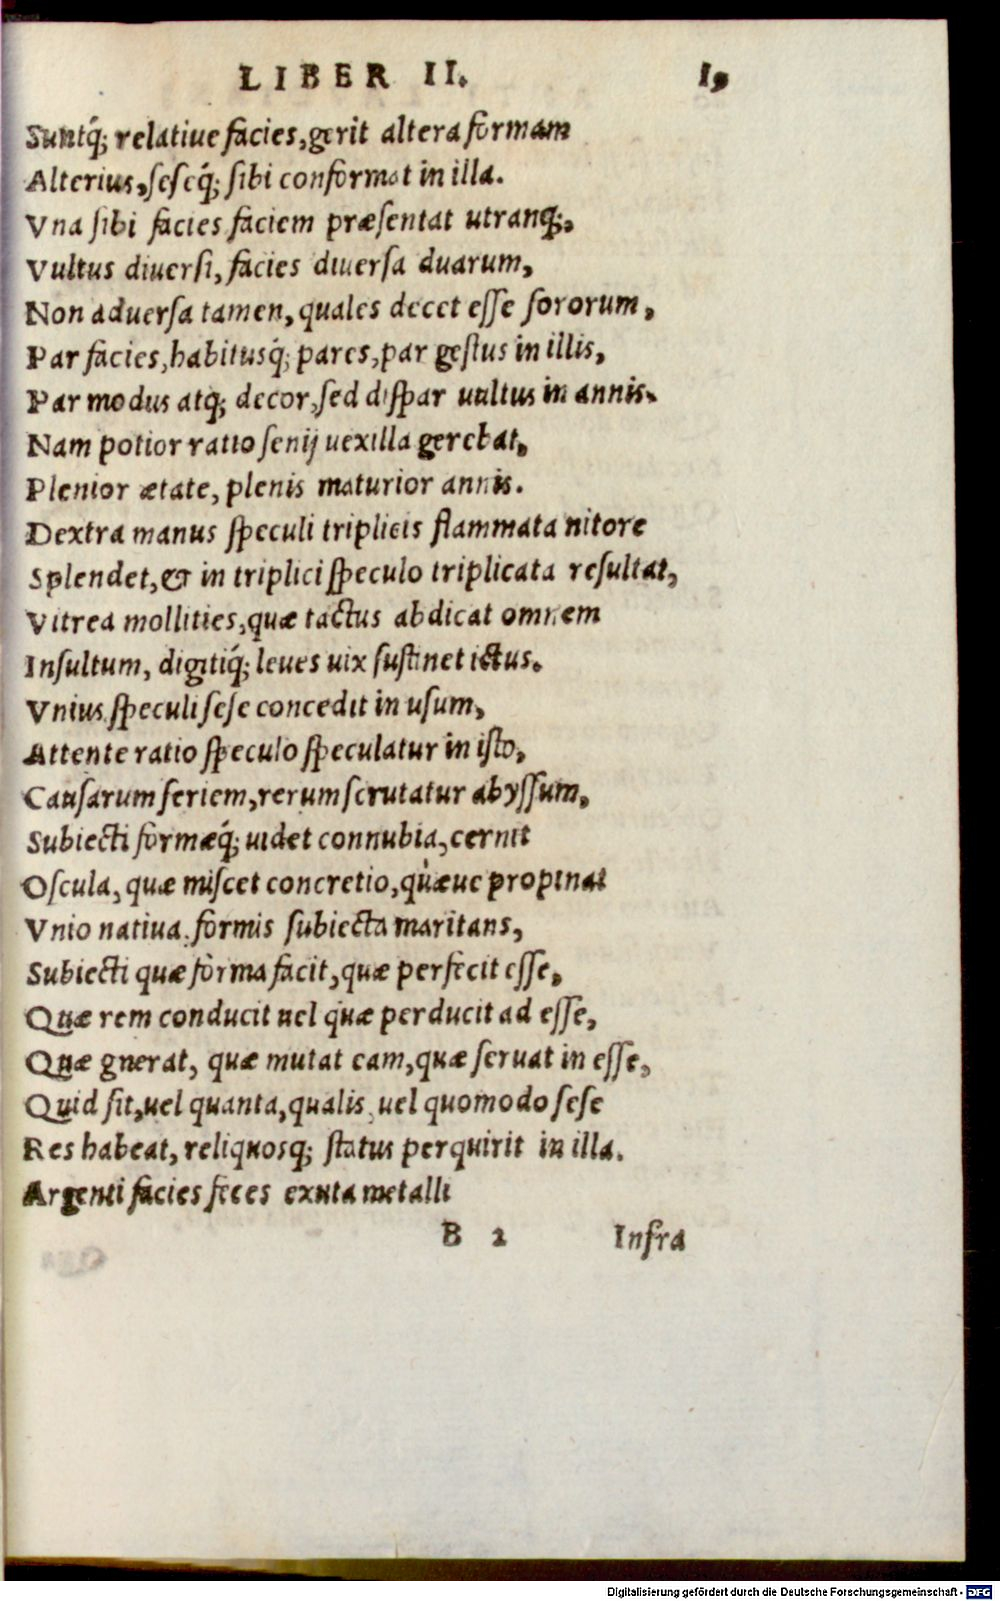 LIBER II. 19
Suntq́; relatiue facies, gerit altera formam
Alterius, seseq́; sibi conformat in illa.
Vna sibi facies faciem præsentat utranq;,
Vultus diuersi, facies diuersa duarum,
Non aduersa tamen, quales decet esse sororum,
Par facies, habitusq́; pares, par gestus in illis,
Par modus atq; decor, sed dispar uultus in annis.
Nam potior ratio senij uexilla gerebat,
Plenior ætate, plenis maturior annis.
Dextra manus speculi triplicis flammata nitore
Splendet, & in triplici speculo triplicata resultat,
Vitrea mollities, quæ tactus abdicat omnem
Insultum, digitiq́; leues uix sustinet ictus.
Vnius speculi sese concedit in usum,
Attente ratio speculo speculatur in isto,
Causarum seriem, rerum scrutatur abyssum,
Subiecti formæq́; uidet connubia, cernit
Oscula, quæ miscet concretio, quæue propinat
Vnio natiua, formis subiecta maritans,
Subiecti quæ forma facit, quæ perfecit esse,
Quæ rem conducit uel quæ perducit ad esse,
Quæ gnerat, quæ mutat eam, quæ seruat in esse,
Quid sit, uel quanta, qualis, uel quomodo sese
Res habeat, reliquosq; status perquirit in illa.
Argenti facies feces exuta metalli
B 2 Infra
Digitalisierung gefördert durch die Deutsche Forschungsgemeinschaft - DFG